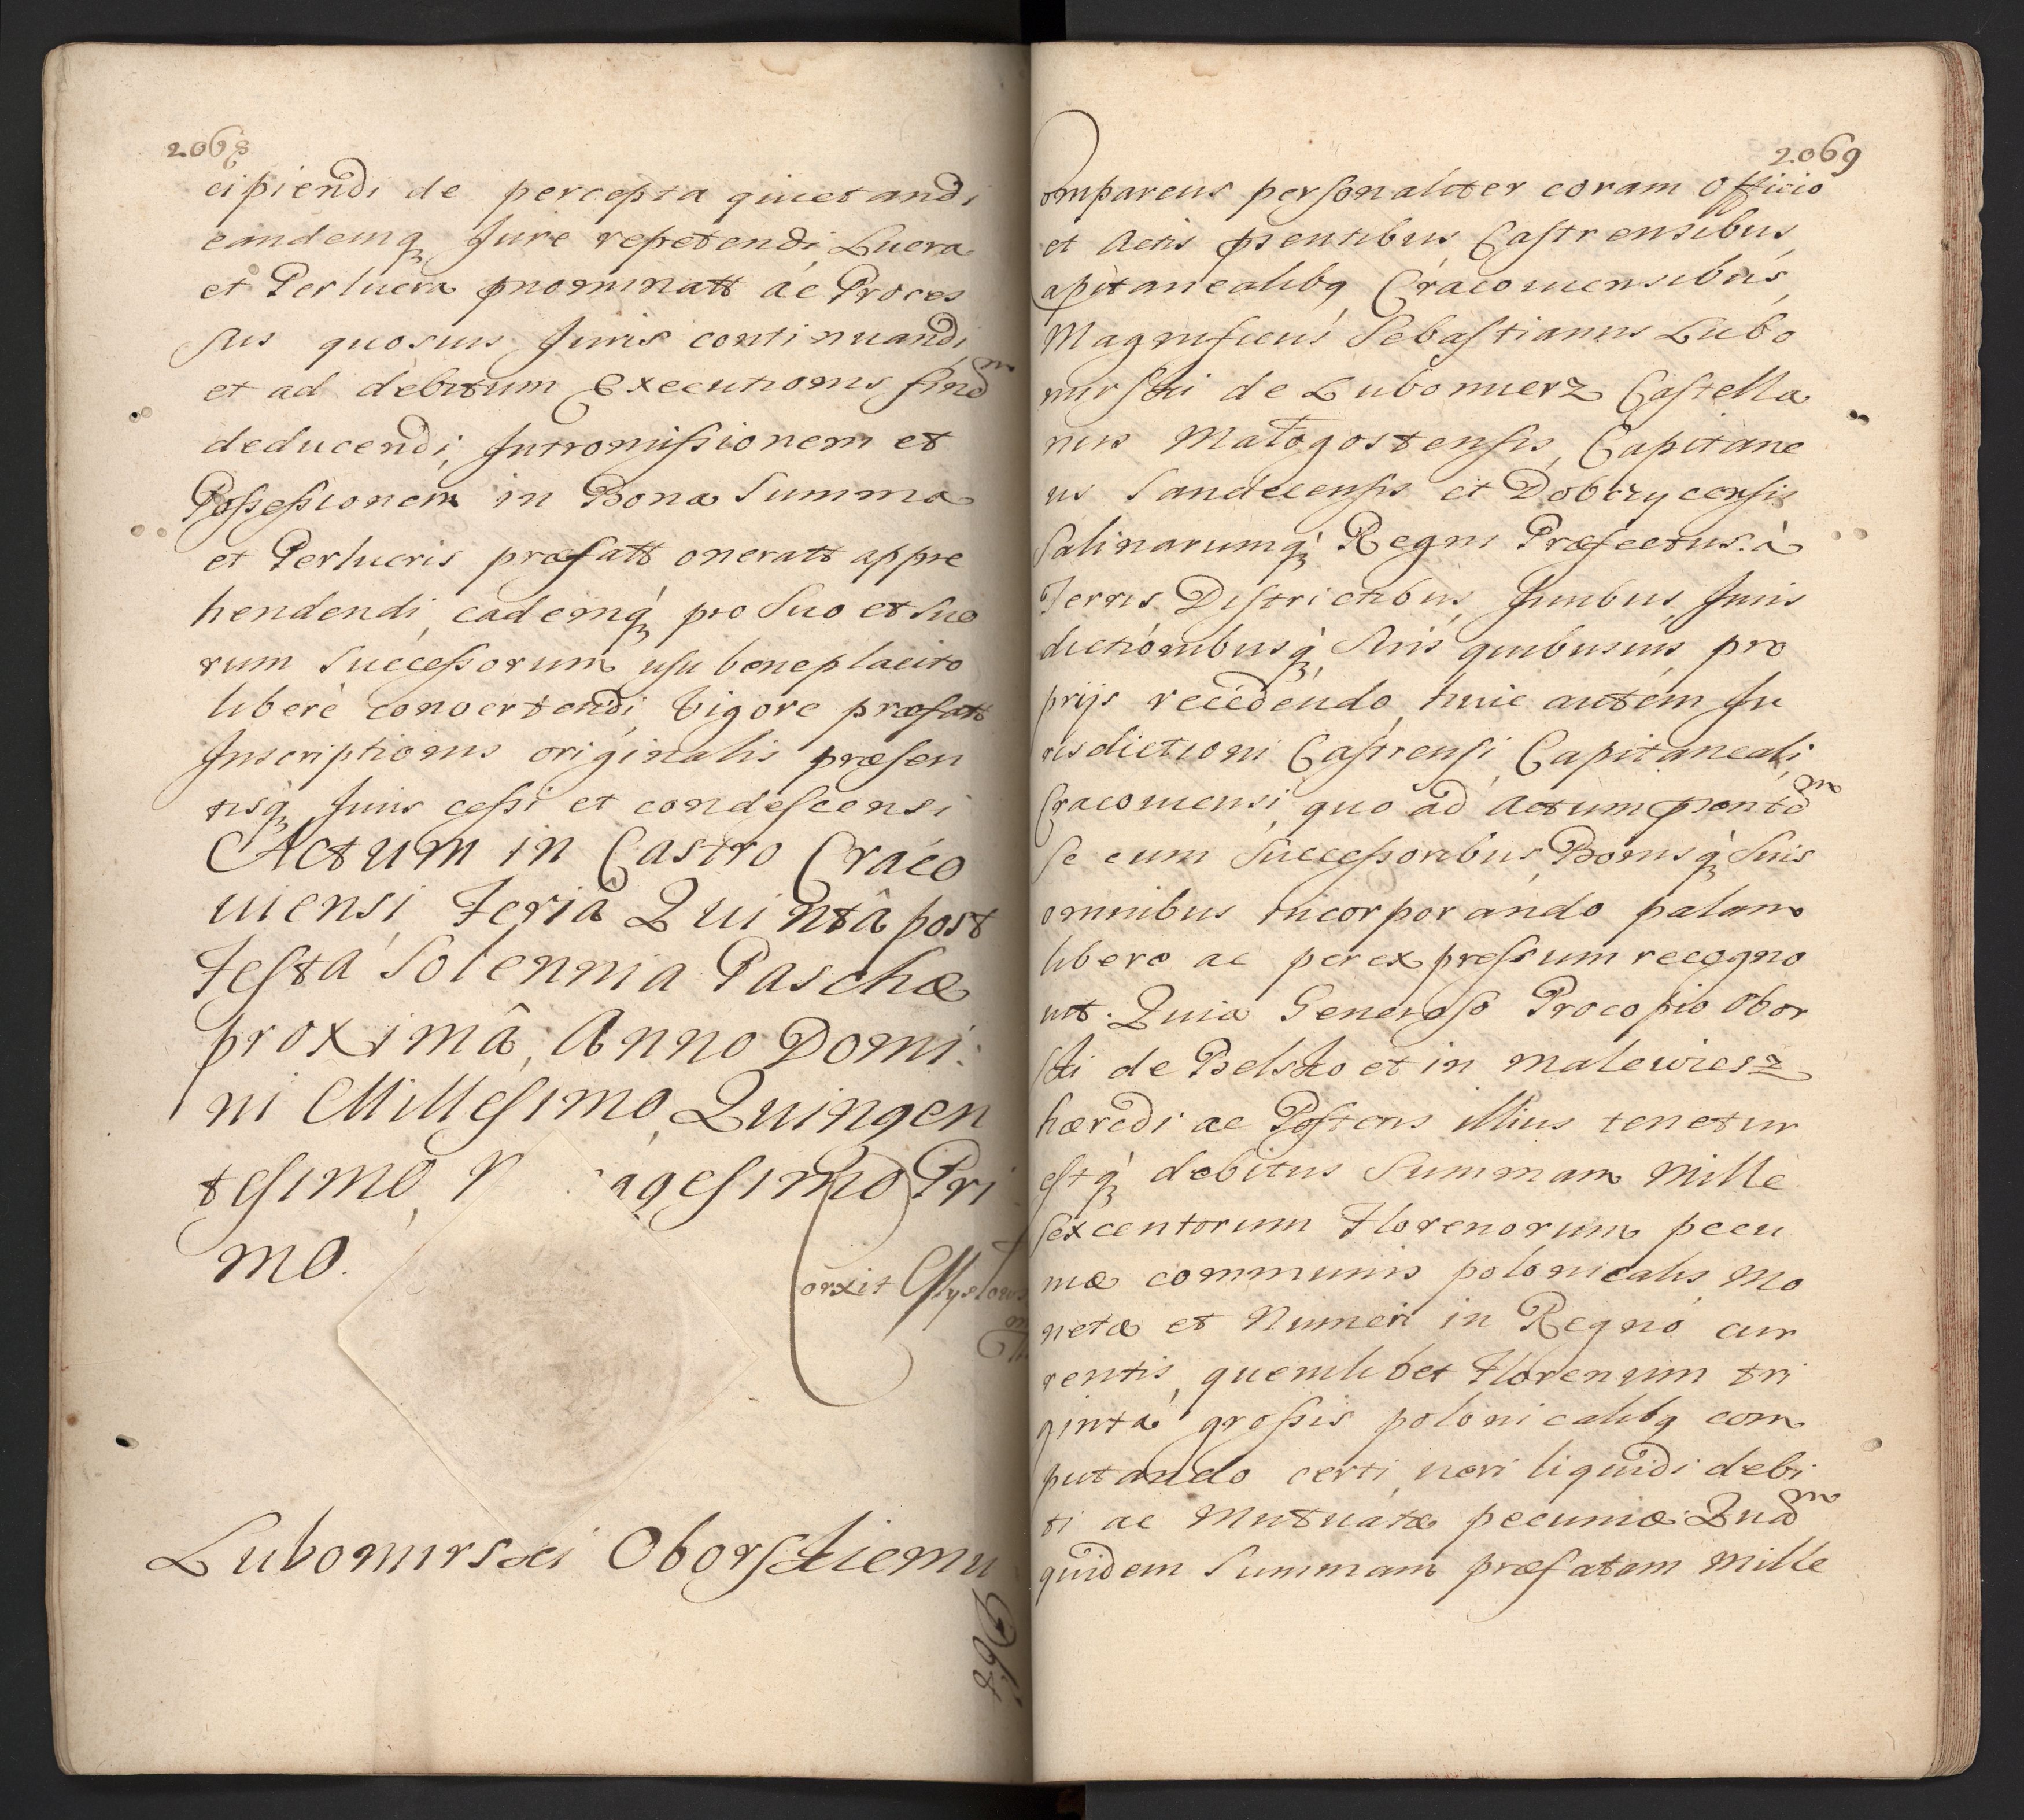 2068
cipiendi de percepta quietandi
eandemq Jure repetendi, Lucra
et Perlucra pnominatt ac Proces
sus quosuis Juris continuandi
et ad debitum Executionis find m
deducendi, Intromissionem et
Possessionem in Bona Summa
et Perlucris præfatt oneratt appre
hendendi, eademq pro Suo et Suo
rum Successorum usu beneplacito
liberè convertendi, Vigore præfatt
Inscriptionis originalis præsen
tisq Juris cessi et condescensi
Actum in Castro Craco
uiensi, Feriâ Quintâ post
Festa Solennia Paschæ
proximâ, Anno Domi:
ni Millesimo, Quingen
tesimo, agesimo Pri
mo.
Corxit
Lubomirski Oborskiemu
2069
omparens personaliter coram Officio
et Actis psentibus Castrensibus
Capitanealibq Cracouiensibus,
Magnificus Sebastianus Lubo
mirski de Lubomierz Castella
nus Małogostensis, Capitane
us Sandecensis et Dobczycensis
Salinarumq Regni Præfectus. à
Terris Districtibus, Juribus Juris
dictionibusq Suis quibusuis pro
prijs recedendo, huic autem Ju
risdictioni Castrensi Capitaneali
Cracouiensi, quo ad Actum psente m
Se cum Successoribus, Bonisq Suis
omnibus incorporando palam
libere ac per expressum recogno
uit. Quia Generoso Procopio Obor
ski de Belsko et in Malewiesz
hæredi ac Posteris illius tenetur
estq debitus Summam Mille
sexcentorum Florenorum pecu
niæ communis polonicalis Mo
netæ et Numeri in Regno cur
rentis, quemlibet Florenum tri
ginta grossis polonicalibq com
putando certi, ueri liquidi debi
ti ac Mutuatæ pecuniæ. Quā m
quidem Summam præfatam Mille